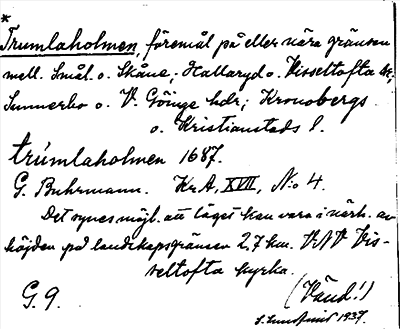 *
Trumlaholmen, föremål på eller nära gränsen
mell. Smål. o. Skåne; Hallaryd o. Visseltofta
Sunnerbo o. V. Göinge hdr; Kronobergs
o. Kristianstads l.
trúmlaholmen 1687.
G. Buhrmann. Kr.A, XVII, N:o 4.
Det synes möjl. att läget kan vara i närh. av
höjden på landskapsgränsen 2,7 km. VNV Vis-
seltofta kyrka.
(Vänd!)
G. 9.
1937.